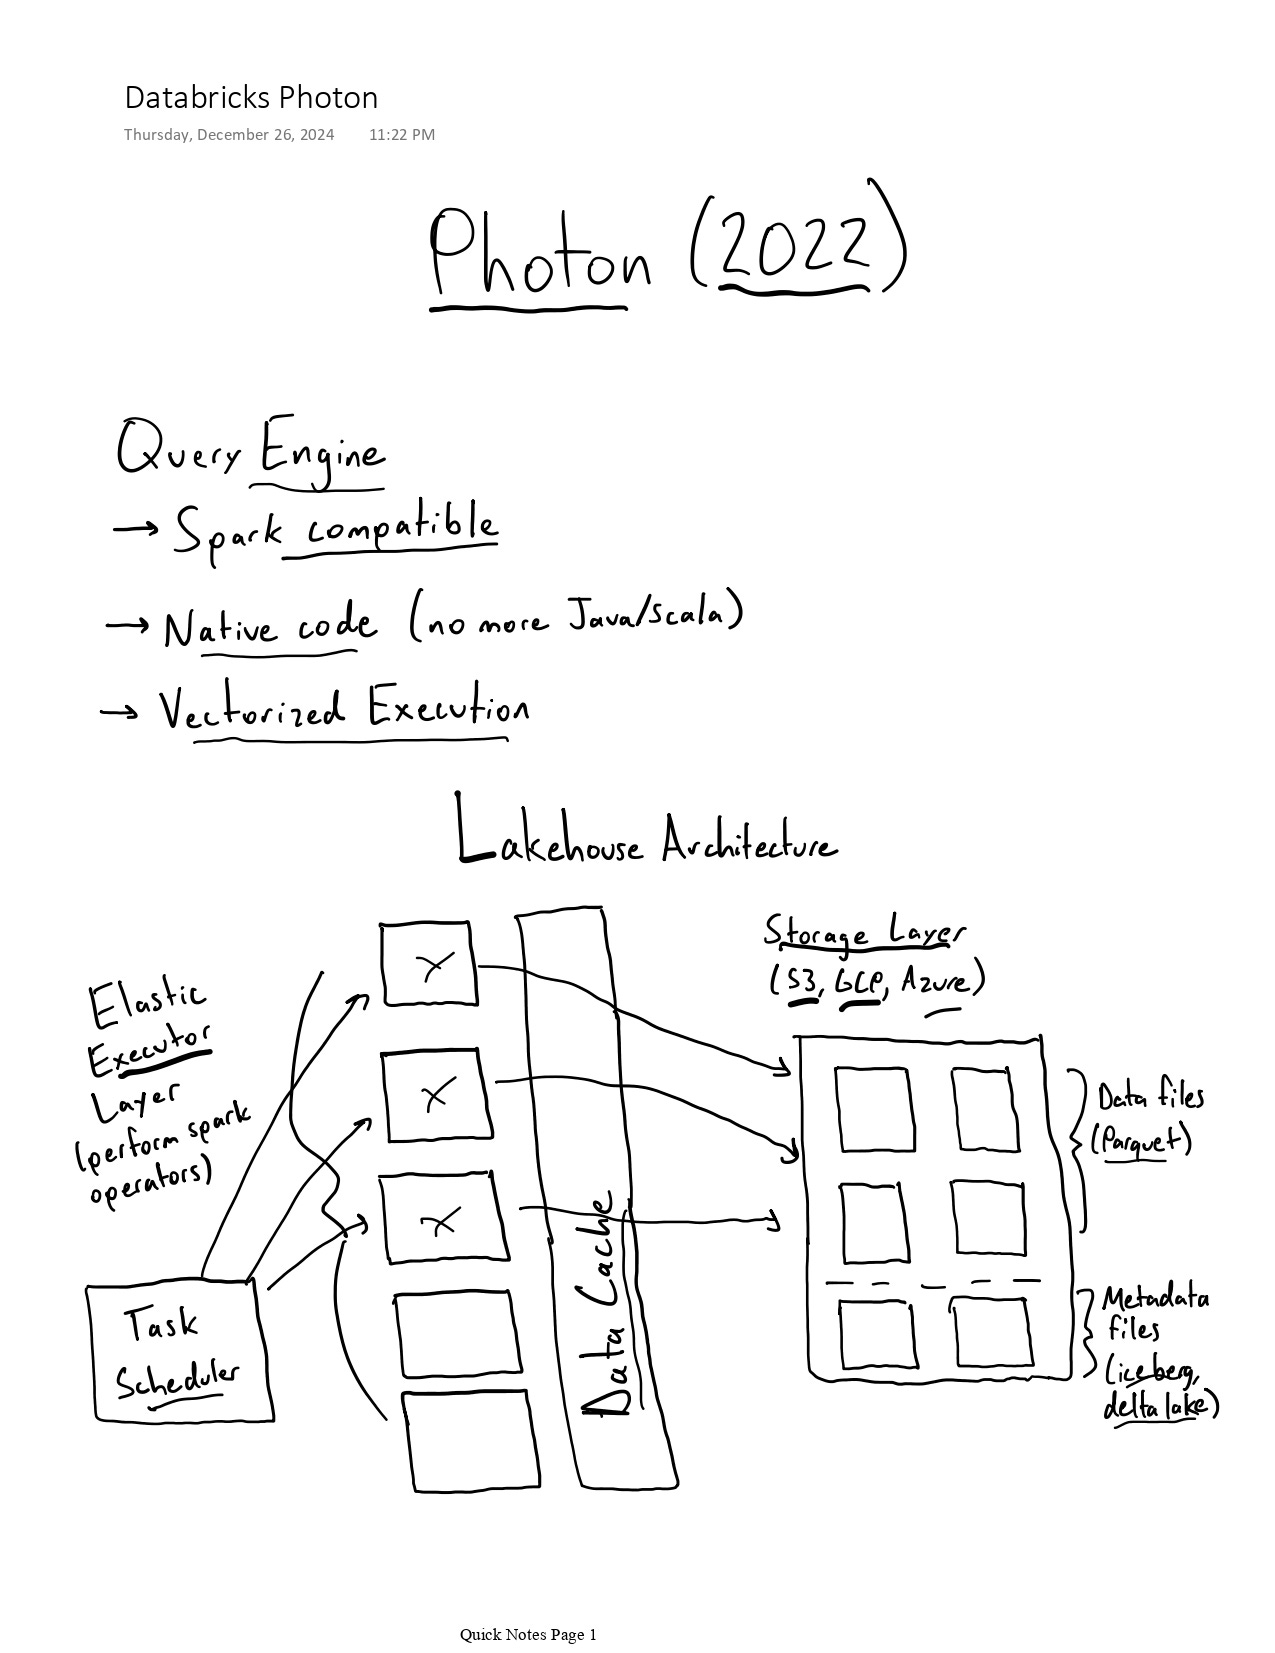 Databricks Photon
Thursday, December 26, 2024 11:22 PM
Photon (2022)
Query Engine
→ Spark compatible
→ Native code (no more Java/Scala)
→ Vectorized Execution
Lakehouse Architecture
Elastic
Executor
Layer
(perform spark
operators)
Task
Scheduler
Data Cache
Storage Layer
(S3, GCP, Azure)
Data files
(Parquet)
Metadata
files
(iceberg,
delta lake)
Quick Notes Page 1